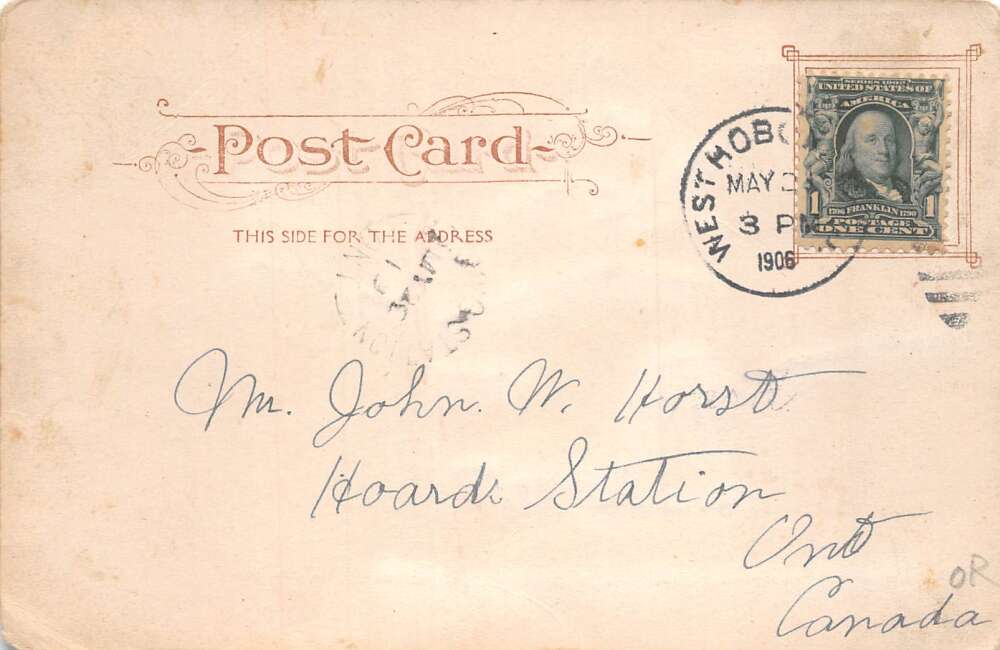 Post Card
THIS SIDE FOR THE ADDRESS
SERIES 1902
UNITED STATES OF
AMERICA
1 1706 FRANKLIN 1790 1
POSTAGE
ONE CENT
WEST HOBO
MAY
3 PM
1906
STATION
Mr. John. W. Horst
Hoards Station
Ont
Canada
OR